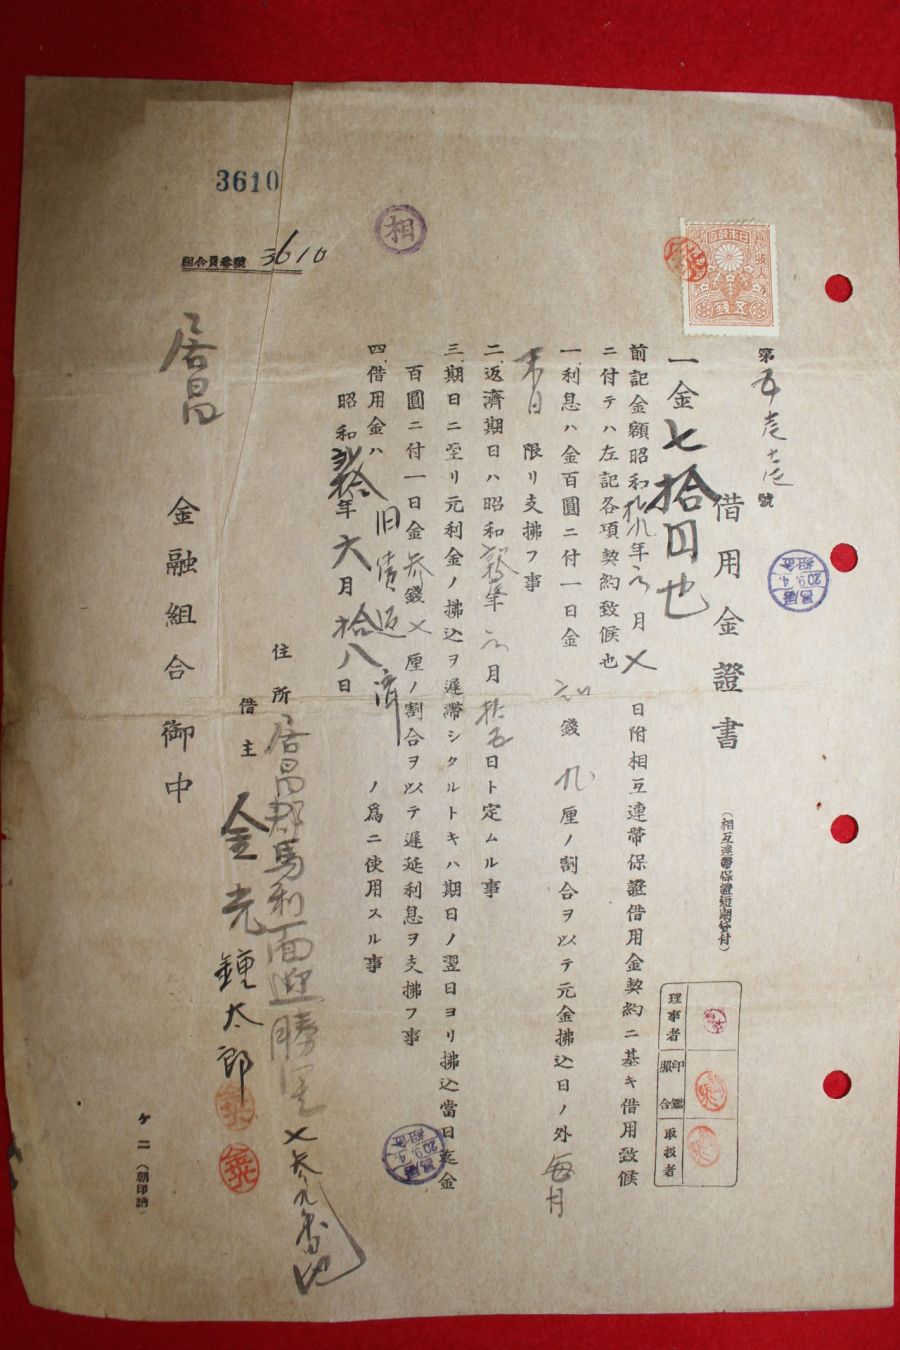 3610
組合員番號 3610
相
第 號
借用金證書
(相互連帶保證短期貸付)
一金七拾円也
前記金額昭和 年 月 日附相互連帶保證借用金契約ニ基キ借用致候
ニ付テハ左記各項契約致候也
一、利息ハ金百圓ニ付一日金 錢 九 厘ノ割合ヲ以テ元金拂込日ノ外毎月
末日限リ支拂フ事
二、返濟期日ハ昭和 年 月拾五日ト定ムル事
三、期日ニ至リ元利金ノ拂込ヲ遲滯シタルトキハ期日ノ翌日ヨリ拂込當日迄金
百圓ニ付一日金參錢 厘ノ割合ヲ以テ遲延利息ヲ支拂フ事
四、借用金ハ 旧債返濟 ノ爲ニ使用スル事
昭和 年六月拾八日
住所 居昌郡馬利面迎勝里 番地
借主 金光鍾太郎
居昌 金融組合御中
理事者
印鑑照合
取扱者
居昌
20.9.4.
組合
居昌
20.9.4.
組合
五錢
ケ二(朝印納)